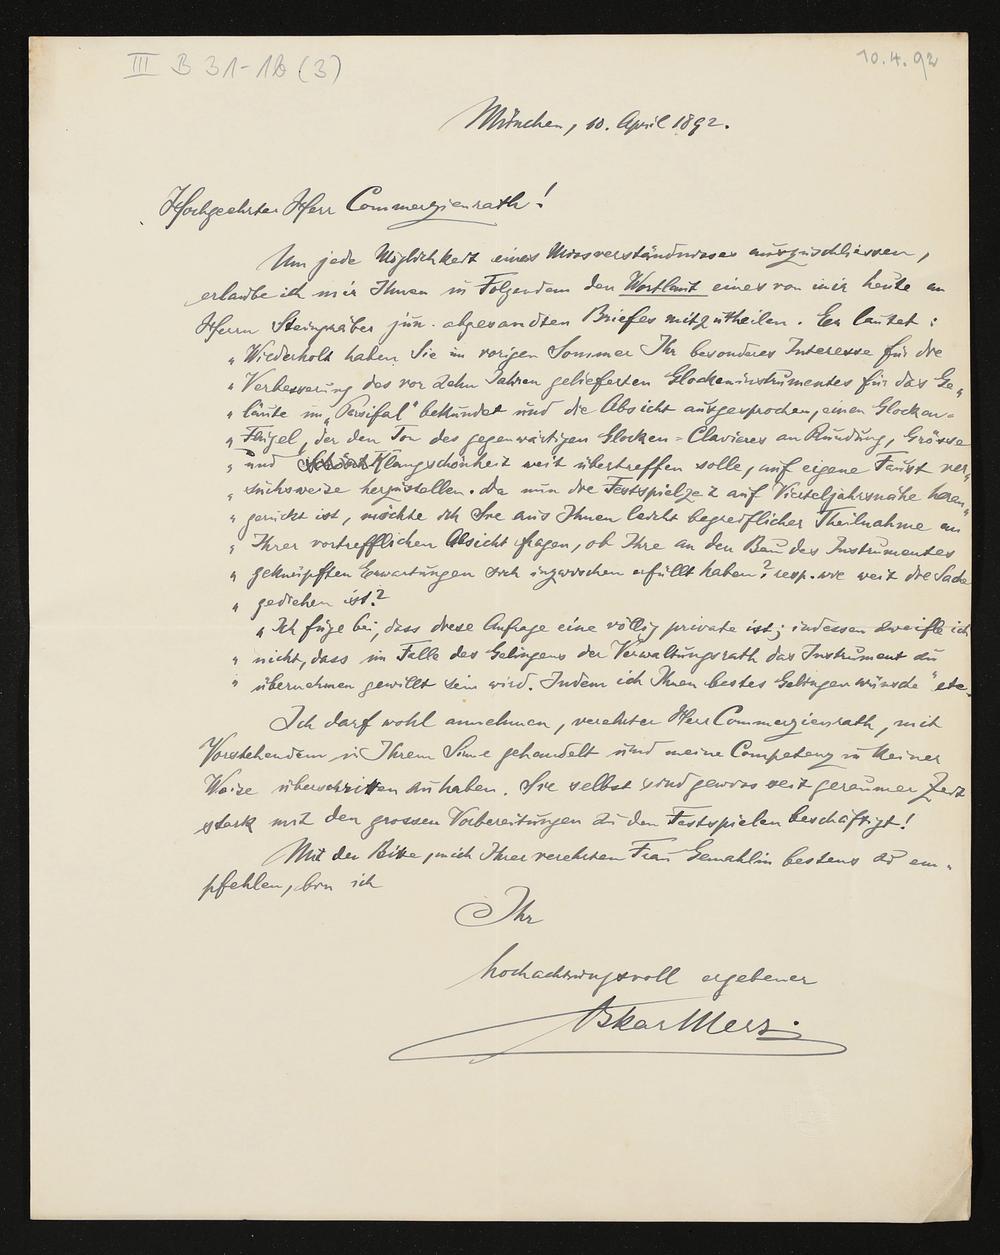 III B 31-1b (3)
10.4.92
München, 10. April 1892.
Hochgeehrter Herr Commerzienrath!
Um jede Möglichkeit eines Missverständnisses auszuschliessen,
erlaube ich mir Ihnen in Folgendem den Wortlaut eines von mir heute an
Herrn Steingräber jun. abgesandten Briefes mitzutheilen. Er lautet:
„Wiederholt haben Sie im vorigen Sommer Ihr besonderes Interesse für die
„Verbesserung des vor zehn Jahren gelieferten Glockeninstrumentes für das Ge„
„läute im „Parsifal" bekundet und die Absicht ausgesprochen, einen Glocken-
„Flügel, der den Ton des gegenwärtigen Glocken=Clavieres an Rundung, Grösse
„und Klangschönheit weit übertreffen solle, auf eigene Faust ver„
„suchsweise herzustellen. Da nun die Festspielzeit auf Vierteljahrsnähe heran„
„gerückt ist, möchte ich Sie aus Ihnen leicht begreiflicher Theilnahme an
„Ihrer vortrefflichen Absicht fragen, ob Ihre an den Bau des Instrumentes
„geknüpften Erwartungen sich inzwischen erfüllt haben? resp. wie weit die Sache
„gediehen ist?
„Ich füge bei, dass diese Anfrage eine völlig private ist; indessen zweifle ich
„nicht, dass im Falle des Gelingens der Verwaltungsrath das Instrument zu
„übernehmen gewillt sein wird. Indem ich Ihnen bestes Gelingen wünsche" etc.
Ich darf wohl annehmen, verehrter Herr Commerzienrath, mit
Vorstehendem in Ihrem Sinne gehandelt und meine Competenz in keiner
Weise überschritten zu haben. Sie selbst sind gewiss seit geraumer Zeit
stark mit den grossen Vorbereitungen zu den Festspielen beschäftigt!
Mit der Bitte, mich Ihrer verehrten Frau Gemahlin bestens zu em„
pfehlen, bin ich
Ihr
hochachtungsvoll ergebener
Oskar Merz.